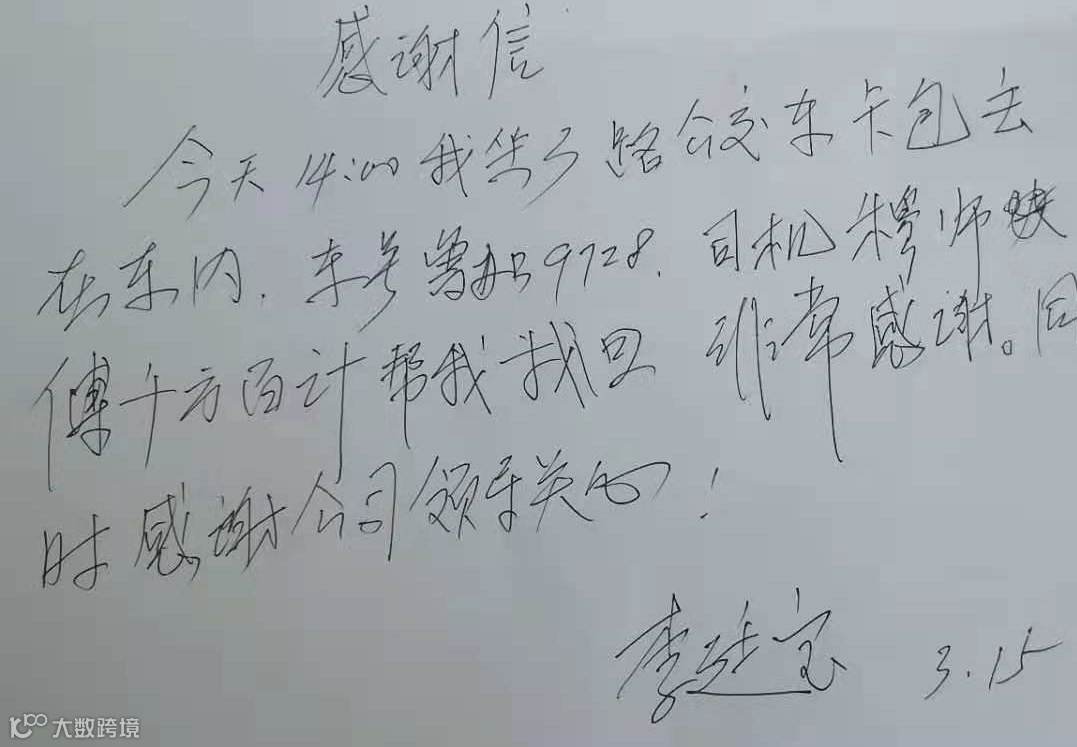 感谢信
今天14:00我坐3路公交车卡包丢
在车内.车号鲁 9728.司机穆师
傅千方百计帮我找回 非常感谢。同
时感谢公司领导关心!
李延宝 3.15
大数跨境